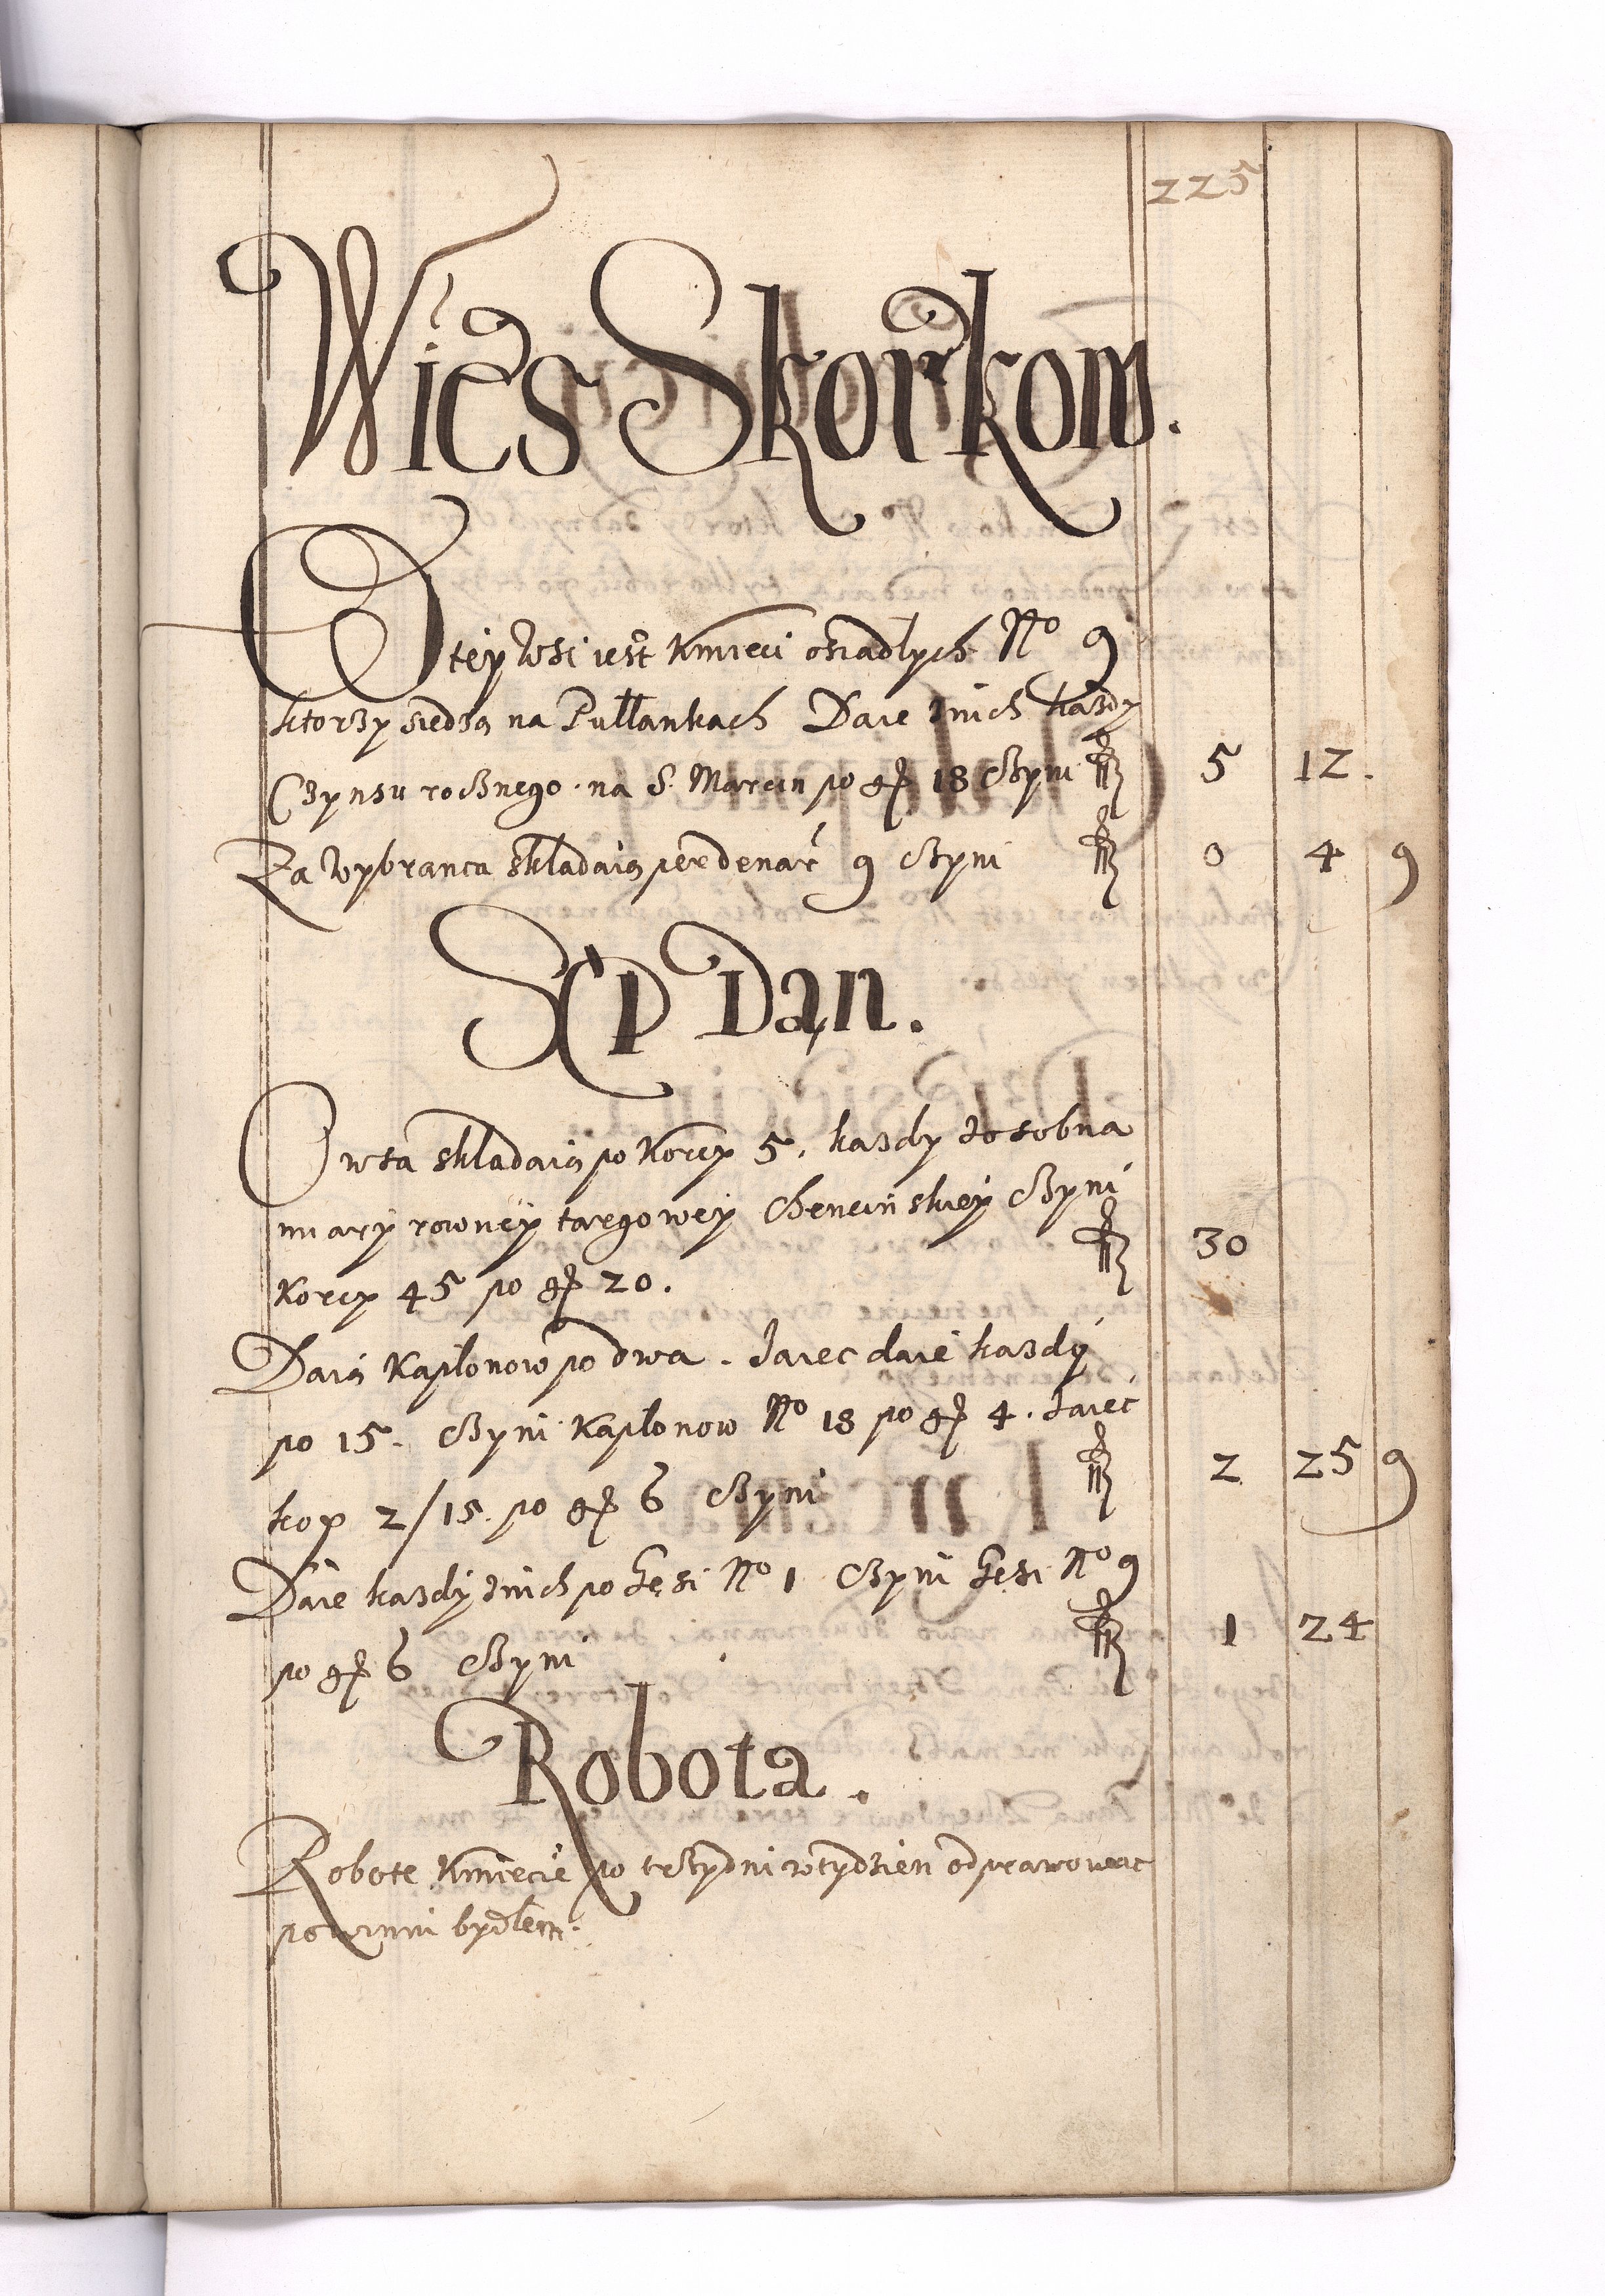 225
Wies Skorkow.
W tey Wsi iest Kmieci osiadlych No 9
ktorzy siedzą na Pułłankach Daie znich kazdy
Czynsu rocznego na S. Marcin po gr 18 Czyni fl 5 12.
Za wybranca składaią per denar 9 Czyni fl 0 4 9
Sep Dan.
Owsa składaią po Korcy 5. kazdy zosobna
miary rowney targowey Chencinskiey Czyni
Korcy 45 po gr 20. fl 30
Daią Kapłonow po dwa. Jaiec daie kazdy
po 15. Czyni Kapłonow No 18 po gr 4. Jaiec
kop 2/15. po gr 6 Czyni fl 2 25 9
Daie kazdy znich po Gęsi No 1 Czyni Gęsi No 9
po gr 6 Czyni fl 1 24
Robota.
Robote Kmiecie po trzy dni w tydzien odprawowac
powinni bydłem.